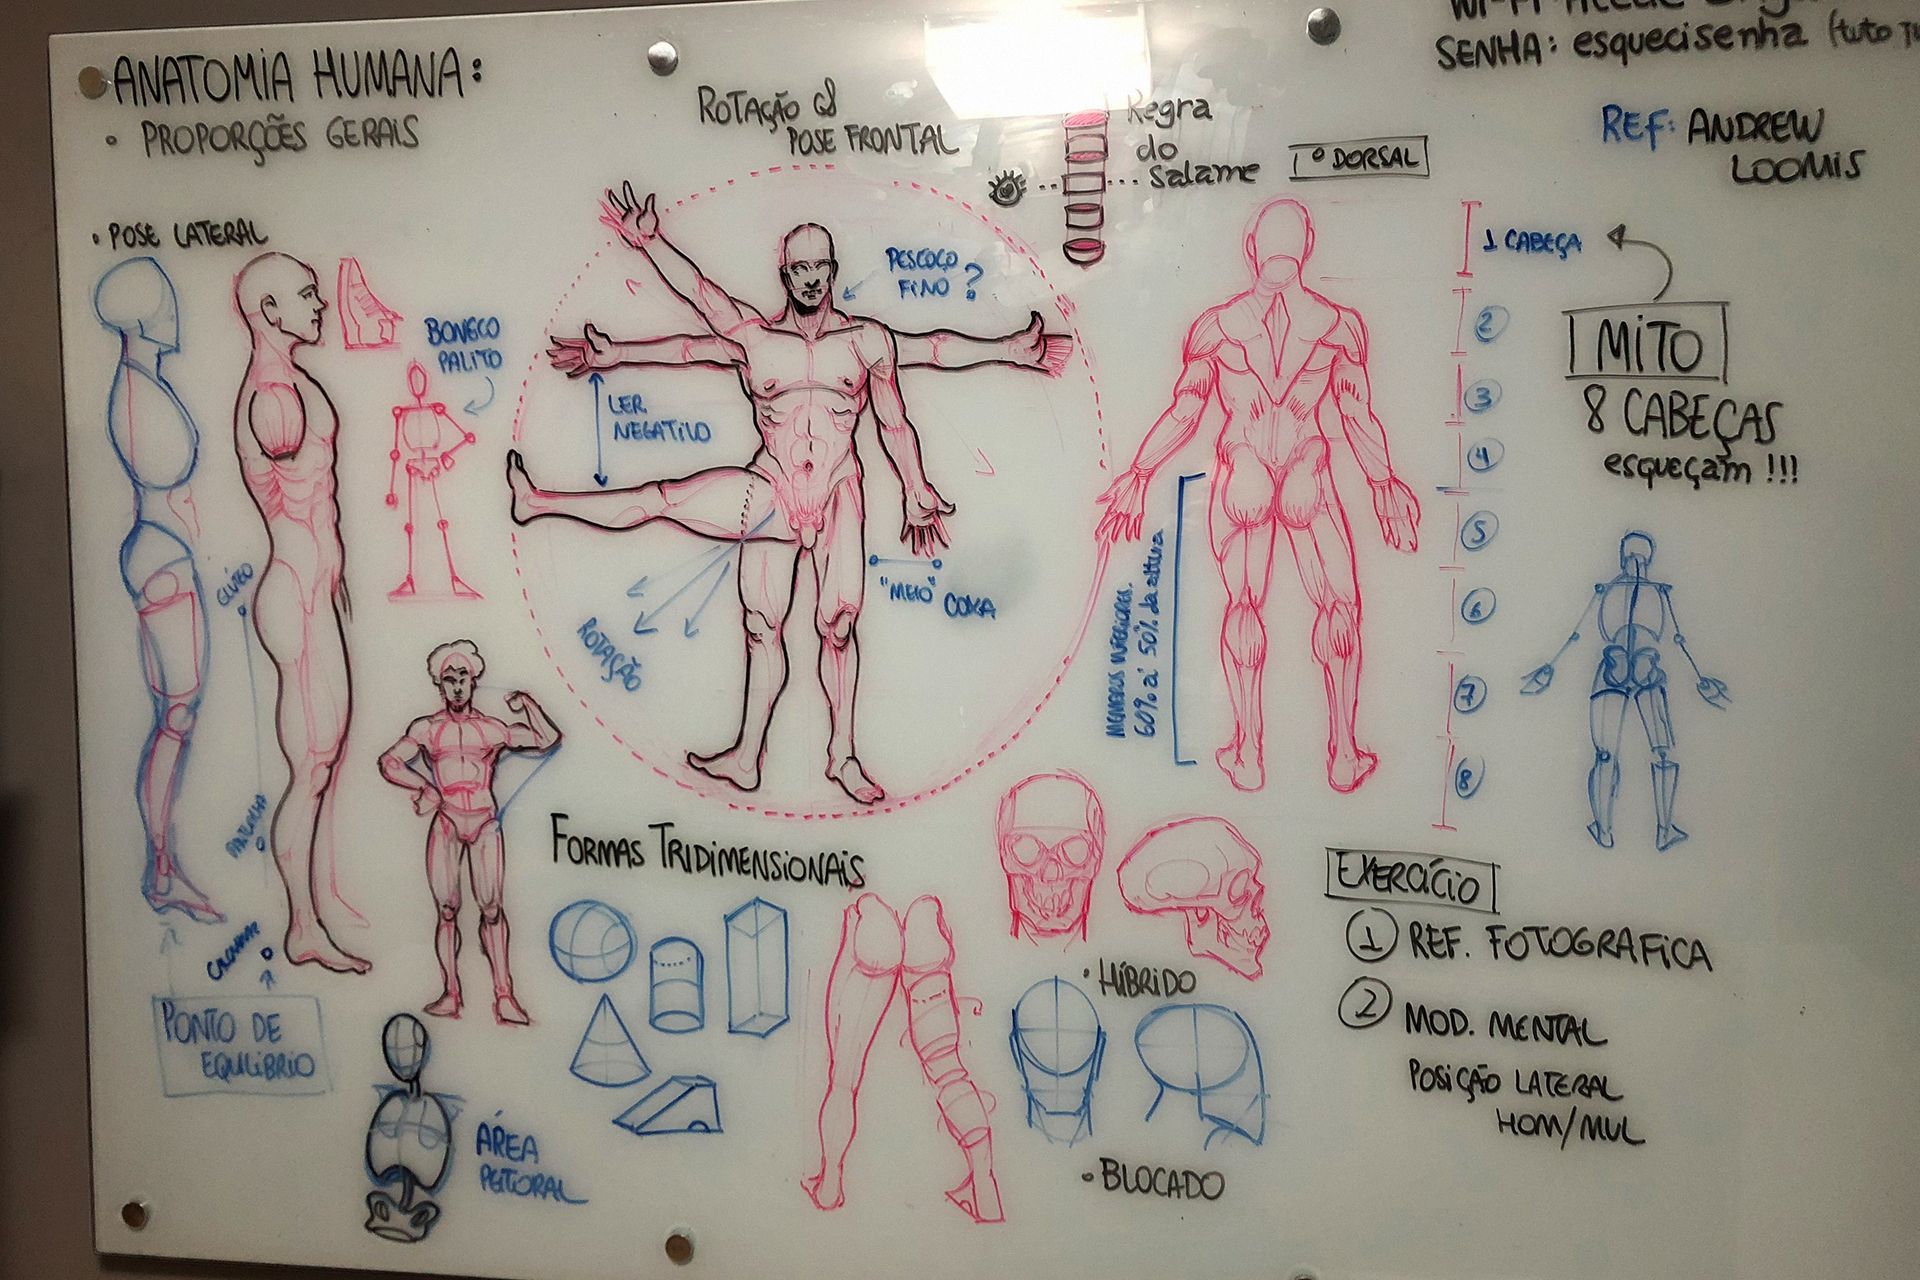 ANATOMIA HUMANA:
• PROPORÇÕES GERAIS
ROTAÇÃO
POSE FRONTAL
Regra
do
Salame
1º DORSAL
SENHA: esquecisenha
REF: ANDREW
LOOMIS
• POSE LATERAL
BONECO
PALITO
PESCOÇO
FINO ?
LER
NEGATIVO
ROTAÇÃO
"MEIO" COXA
MEMBROS INFERIORES.
60% a 50% da altura
1 CABEÇA
2
3
4
5
6
7
8
MITO
8 CABEÇAS
esqueçam !!!
GLÚTEO
PONTO DE
EQUILÍBRIO
FORMAS TRIDIMENSIONAIS
ÁREA
PEITORAL
• HÍBRIDO
• BLOCADO
EXERCÍCIO
1 REF. FOTOGRAFICA
2 MOD. MENTAL
POSIÇÃO LATERAL
HOM/MUL